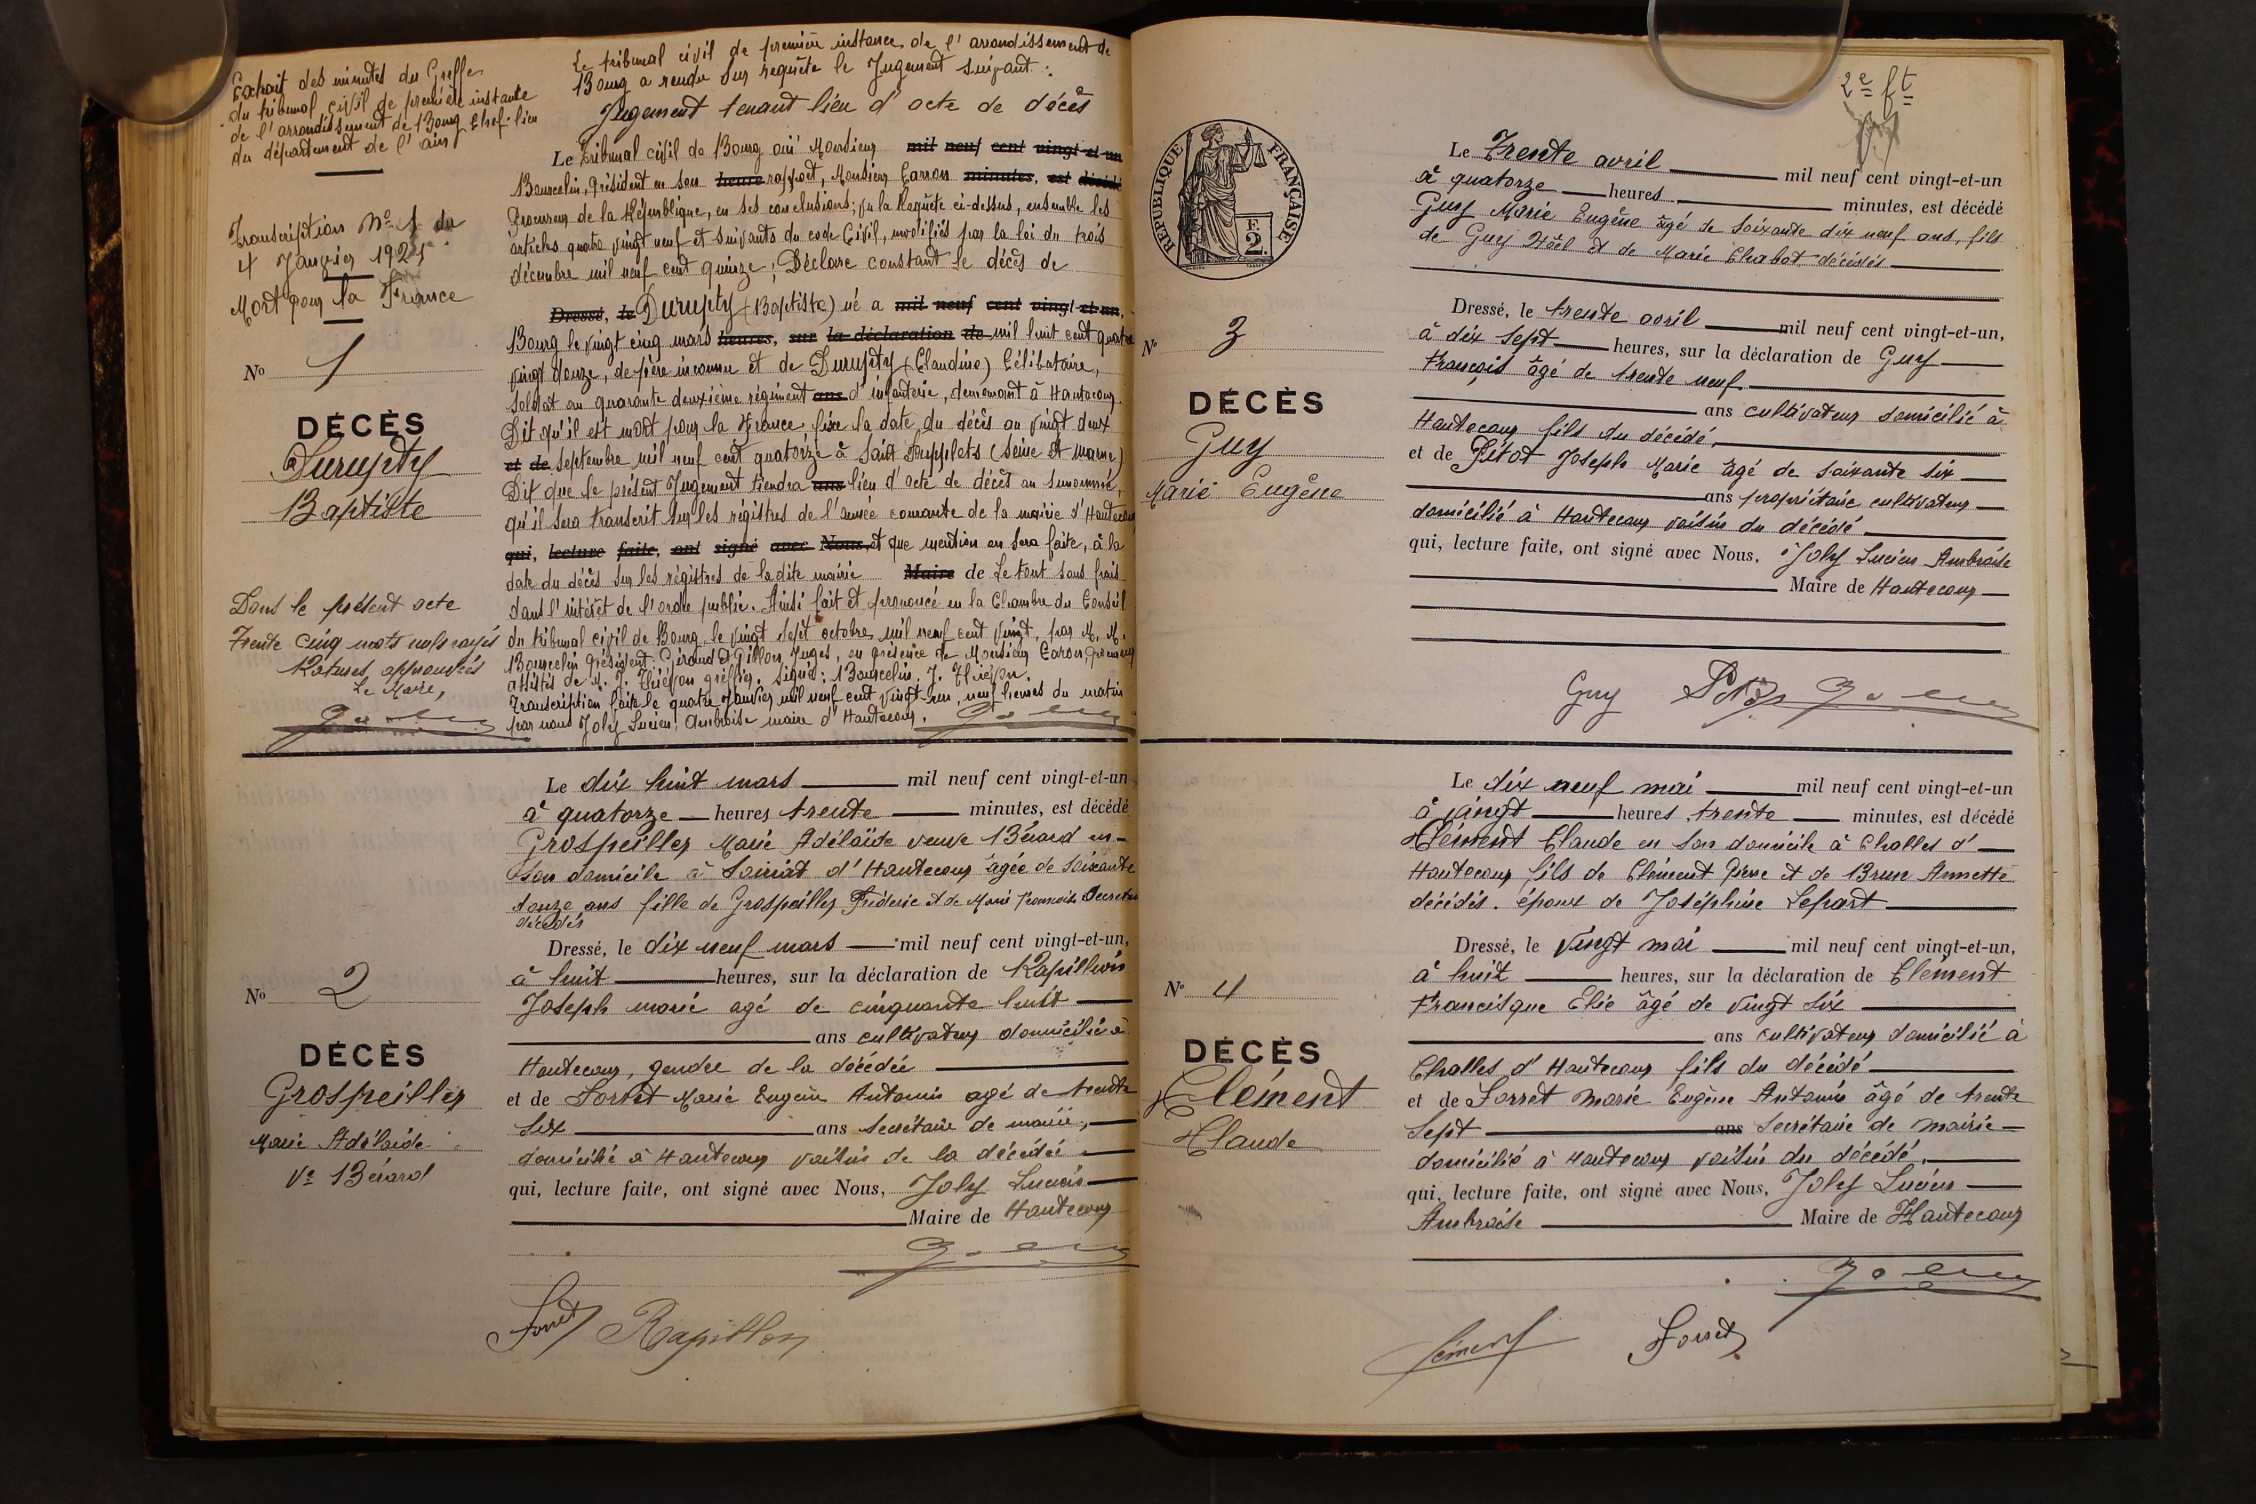 Extrait des minutes du Greffe
du tribunal civil de première instance
de l'arrondissement de Bourg Chef-lieu
du département de l'ain
Transcription No 1 du
4 Janvier 1921
Mort pour la France
No 1
DÉCÈS
Durupty
Baptiste
Dans le présent acte
Trente cinq mots nuls rayés
Ratures approuvées
Le Maire,
Le tribunal civil de première instance de l'arrondissement de
Bourg a rendu sur requête le Jugement suivant :
Jugement tenant lieu d'acte de décès
Le Tribunal civil de Bourg ouï Monsieur mil neuf cent vingt-et-un
Bourcelin, président en son heures rapport, Monsieur Carron minutes, est décédé
Procureur de la République, en ses conclusions; vu la Requête ci-dessus, ensemble les
articles quatre vingt neuf et suivants du code Civil, modifiés par la loi du trois
décembre mil neuf cent quinze; Déclare constant le décès de
Dressé, le Durupty (Baptiste) né a mil neuf cent vingt-et-un,
Bourg le vingt cinq mars heures, sur la déclaration de mil huit cent quatre
vingt douze, de père inconnu et de Durupty (Claudine) Célibataire,
Soldat au quarante deuxième régiment ans d'infanterie, demeurant à Hautecour.
Dit qu'il est mort pour la France fixe la date du décès au vingt deux
et de septembre mil neuf cent quatorze à Saint Soupplets (Seine et Marne)
Dit que le présent Jugement tiendra ans lieu d'acte de décès au susnommé,
qu'il sera transcrit sur les régistres de l'année courante de la mairie d'Hautecour
qui, lecture faite, ont signé avec Nous, et que mention en sera faite, à la
date du décès sur les régistres de la dite mairie Maire de Le tout sans frais
dans l'intérêt de l'ordre public. Ainsi fait et prononcé en la Chambre du Conseil
du tribunal civil de Bourg le vingt sept octobre mil neuf cent vingt, par M. M.
Bourcelin président; Géraud et Gillon, Juges, en présence de Monsieur Caron, procureur
assistés de M. J. Thiévon greffier. Signés: Bourcelin, J. Thiévon.
Transcription faite le quatre Janvier mil neuf cent vingt-un, neuf heures du matin
par nous Joly Lucien, Ambroise maire d'Hautecour.
No 2
DÉCÈS
Grospeiller
Marie Adélaïde
Ve Bérard
Le dix huit mars mil neuf cent vingt-et-un
à quatorze heures trente minutes, est décédé
Grospeiller Marie Adélaïde veuve Bérard en
son domicile à d'Hautecour âgée de soixante
douze ans fille de Grospeiller Fréderic et de Marie Françoise
décédés
Dressé, le dix neuf mars mil neuf cent vingt-et-un,
à huit heures, sur la déclaration de Rapillon
Joseph marie agé de cinquante huit
ans cultivateur domicilié à
Hautecour, gendre de la décédée
et de Sorret Marie Eugène Antonin agé de trente
six ans secrétaire de mairie,
domicilié à Hautecour voisin de la décédée
qui, lecture faite, ont signé avec Nous, Joly Lucien
Maire de Hautecour
Sorret Rapillon
2e ft
RÉPUBLIQUE FRANÇAISE
E
2
No 3
DÉCÈS
Guy
Marie Eugène
Le Trente avril mil neuf cent vingt-et-un
à quatorze heures minutes, est décédé
Guy Marie Eugène âgé de soixante dix neuf ans, fils
de Guy Noël et de Marie Chabot décédés
Dressé, le trente avril mil neuf cent vingt-et-un,
à dix sept heures, sur la déclaration de Guy
François âgé de trente neuf
ans cultivateur domicilié à
Hautecour fils du décédé,
et de Pitot Joseph Marie âgé de soixante six
ans propriétaire cultivateur
domicilié à Hautecour voisin du décédé
qui, lecture faite, ont signé avec Nous, Joly Lucien Ambroise
Maire de Hautecour
Guy
No 4
DÉCÈS
Clément
Claude
Le dix neuf mai mil neuf cent vingt-et-un
à vingt heures trente minutes, est décédé
Clément Claude en son domicile à Challes d'
Hautecour fils de Clément Pierre et de Brun Annette
décédés. époux de Joséphine Lepart
Dressé, le vingt mai mil neuf cent vingt-et-un,
à huit heures, sur la déclaration de Clément
Francisque Elie âgé de vingt six
ans cultivateur domicilié à
Challes d'Hautecour fils du décédé
et de Sorret Marie Eugène Antonin âgé de trente
sept ans secrétaire de mairie
domicilié à Hautecour voisin du décédé,
qui, lecture faite, ont signé avec Nous, Joly Lucien
Ambroise Maire de Hautecour
Clément Sorret